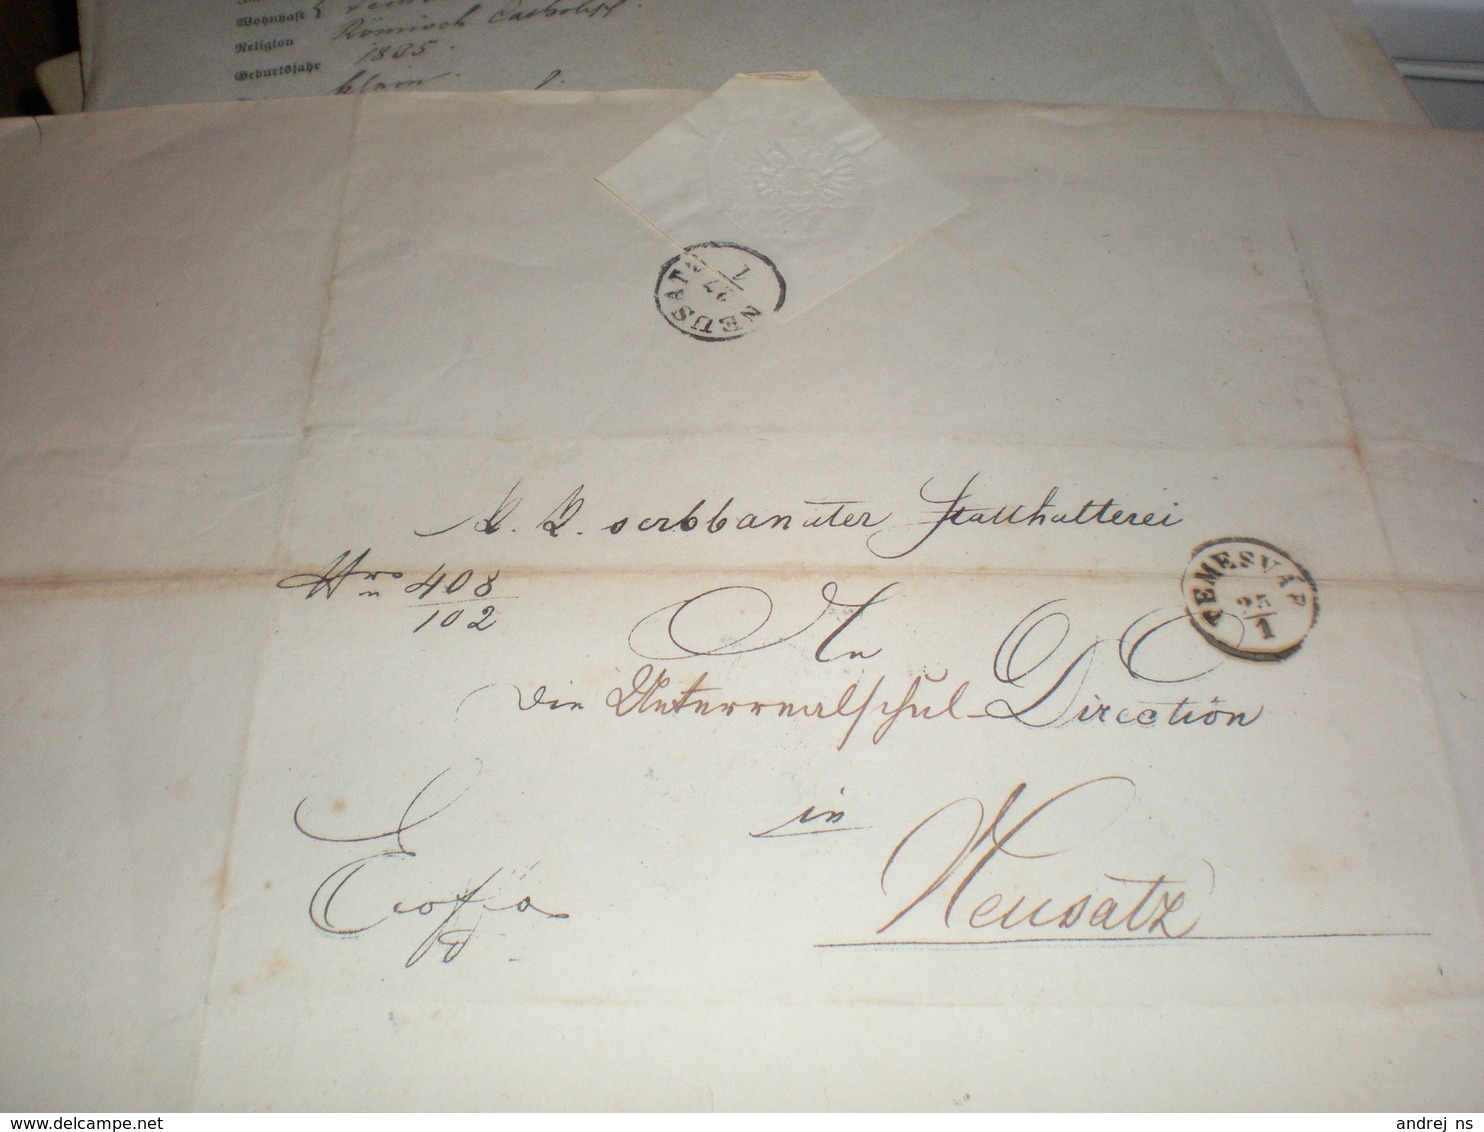 Wohnhaft
Religion Römisch Catholisch
Geburtsjahr 1835.
klein
NEUSATZ
27
1
K. K. serbbanater Statthalterei
Nro 408
102
TEMESVÁR
25
1
An
die Unterrealschul-Direction
in
Neusatz
Exoffo
www.delcampe.net
andrej_ns